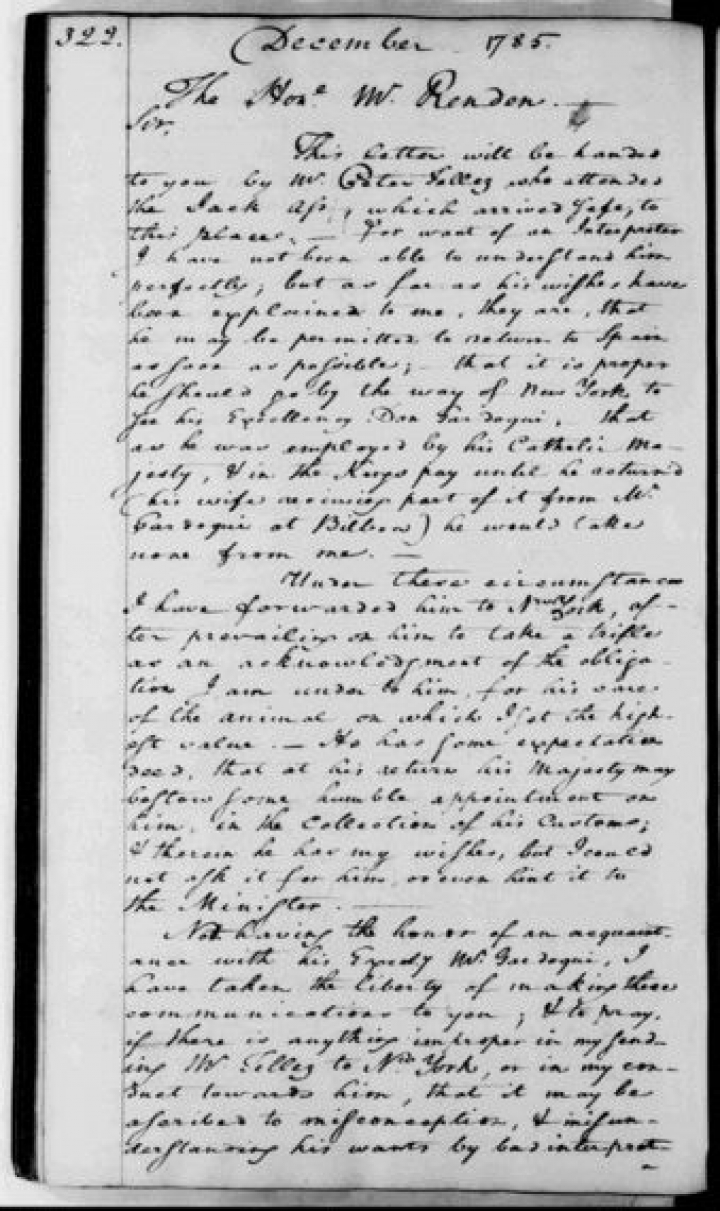 322.
December 1785.
The Hon.e Mr. Rendon.
Sir,
This letter will be handed
to you by Mr. Peter Tellez who attended
the Jack Ass, which arrived safe, to
this place. — For want of an Interpreter
I have not been able to understand him
perfectly; but as far as his wishes have
been explained to me, they are, that
he may be permitted to return to Spain
as soon as possible; — that it is proper
he should go by the way of New York, to
see his Excellency Don Gardoqui, that
as he was employed by his Catholic Ma-
jesty, & in the Kings pay until he returned
(his wife receiving part of it from Mr.
Gardoqui at Bilboa) he would take
none from me. —
Under these circumstances
I have forwarded him to New York, af-
ter prevailing on him to take a trifle
as an acknowledgment of the obliga-
tion I am under to him, for his care
of the animal on which I set the high-
est value. — He has some expectation
, that at his return his Majesty may
bestow some humble appointment on
him, in the Collection of his Customs;
& therein he has my wishes, but I could
not ask it for him, or even hint it to
the Minister. —
Not having the honor of an acquaint-
ance with his Excely Mr. Gardoqui, I
have taken the liberty of making these
communications to you; & to pray,
if there is anything improper in my send-
ing Mr Tellez to New York, or in my con-
duct towards him, that it may be
ascribed to misconception, & misun-
derstanding his wants by bad interpret-